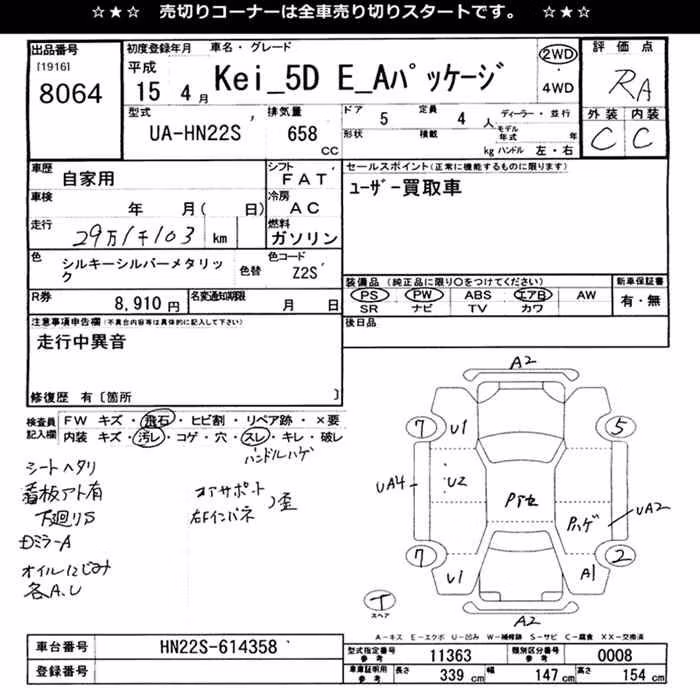 ☆★☆ 売切りコーナーは全車売り切りスタートです。 ☆★☆
出品番号
[1916]
8064
初度登録年月
平成
15 4月
車名・グレード
Kei_5D E_Aパッケージ
2WD
4WD
評価点
RA
外装 内装
C C
型式
UA-HN22S
排気量
658
cc
ドア 5
定員 4 人
ディーラー・並行
形状
積載 kg
モデル年式 年
ハンドル 左・右
車歴
自家用
シフト
FAT
車検
年 月( 日)
冷房
AC
走行
29万1千103 km
燃料
ガソリン
色
シルキーシルバーメタリック
色替
色コード
Z2S
R券
8,910円
名変通知期限
月 日
セールスポイント(正常に機能するものに限ります)
ユーザー買取車
装備品(純正品に限り○をつけてください)
PS PW ABS エアB AW
SR ナビ TV カワ
新車保証書
有・無
後日品
注意事項申告欄(不具合内容等は具体的に記入して下さい)
走行中異音
修復歴 有〔箇所 〕
検査員
記入欄
FW キズ・飛石・ヒビ割・リペア跡・×要
内装 キズ・汚レ・コゲ・穴・スレ・キレ・破レ
ハンドルハゲ
シートヘタリ
看板アト有
下廻りS
DミラーA
オイルにじみ
各A.U
コアサポート
右Fインパネ
歪
A2
7
U1
5
UA4
U2
Pハゲ
UA2
7
U1
2
A1
T
スペア
A2
A-キズ E-エクボ U-凹み W-補修跡 S-サビ C-腐食 XX-交換済
車台番号
HN22S-614358
登録番号
型式指定番号
参考
11363
類別区分番号
参考
0008
車庫証明用
参考
長さ 339 cm
幅 147 cm
高さ 154 cm